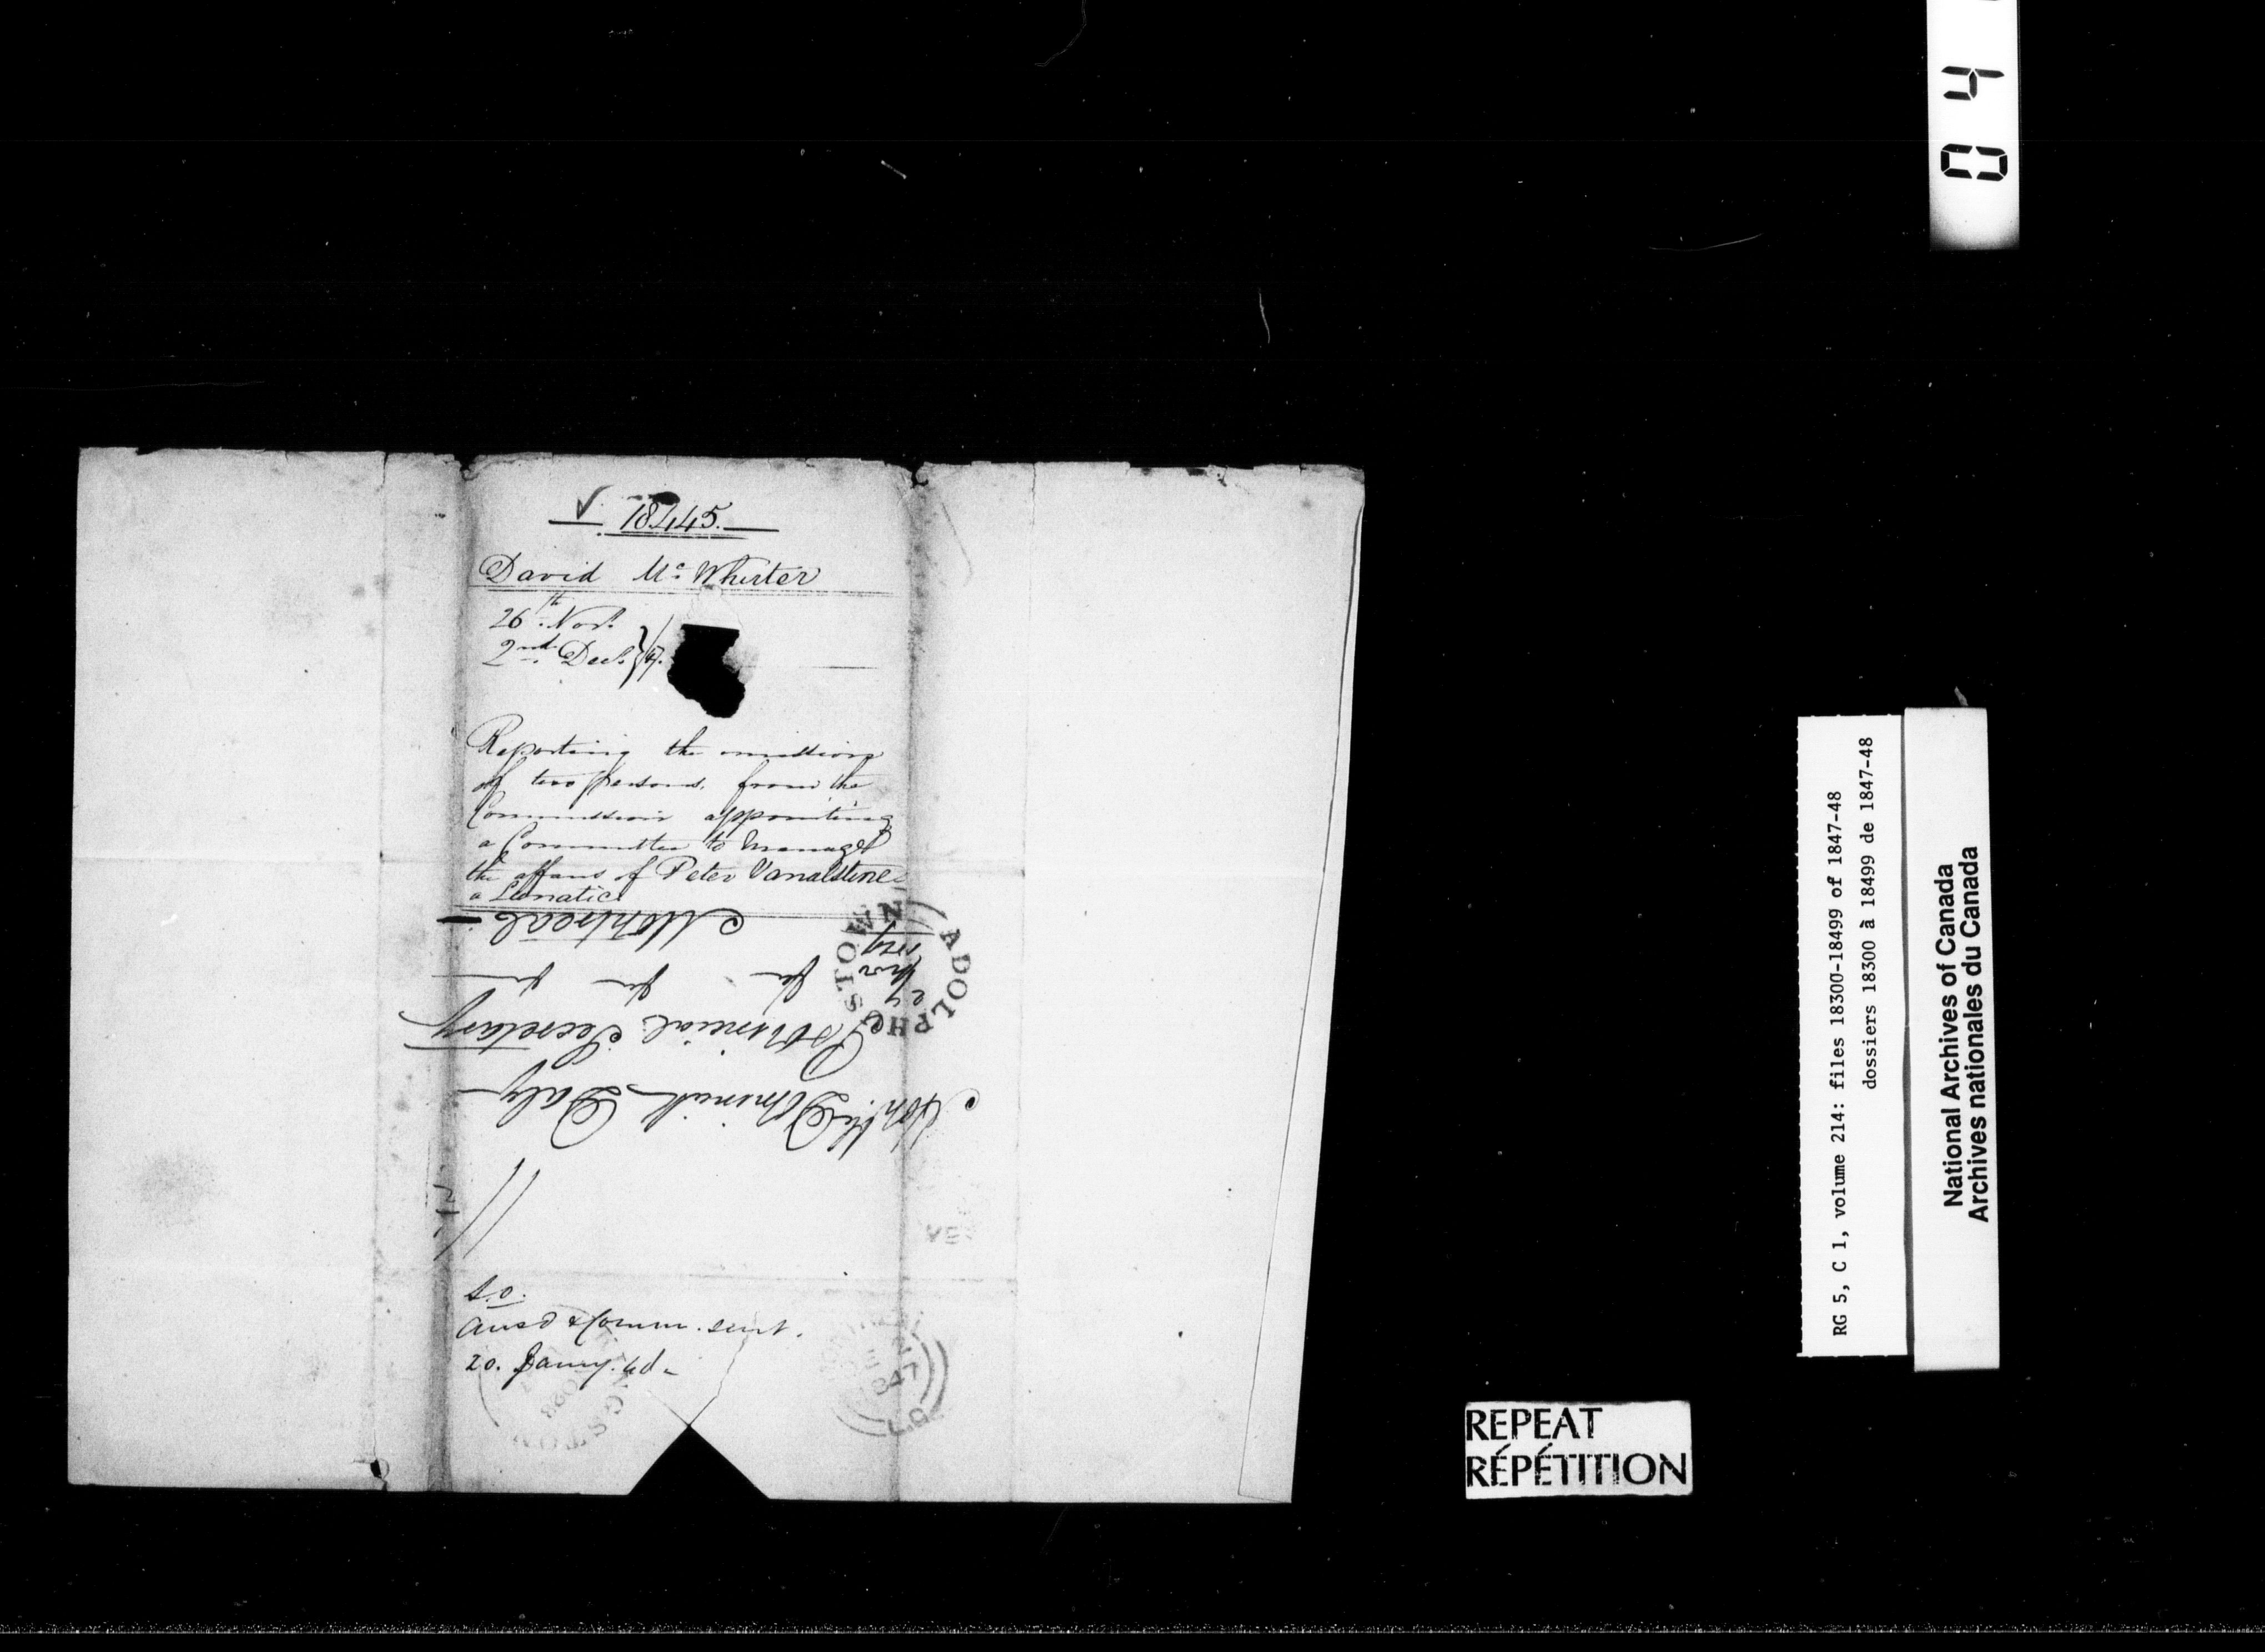 ✓ 18445.
David Mc Whirter
26th Novr.
2nd Decr. } 47.
Reporting the omission
of two persons, from the
Commission appointing
a Committee to manage
the affairs of Peter Vanalstine
a Lunatic
Honble Dominick Daly
Provincial Secretary
Montreal
ADOLPHUSTOWN
S.O.
Ansd & Comm. sent.
20. Jany. 48.
KINGSTON
MONTREAL
DE 2
1847
L.C.
04
RG 5, C 1, volume 214: files 18300-18499 of 1847-48
dossiers 18300 à 18499 de 1847-48
National Archives of Canada
Archives nationales du Canada
REPEAT
RÉPÉTITION